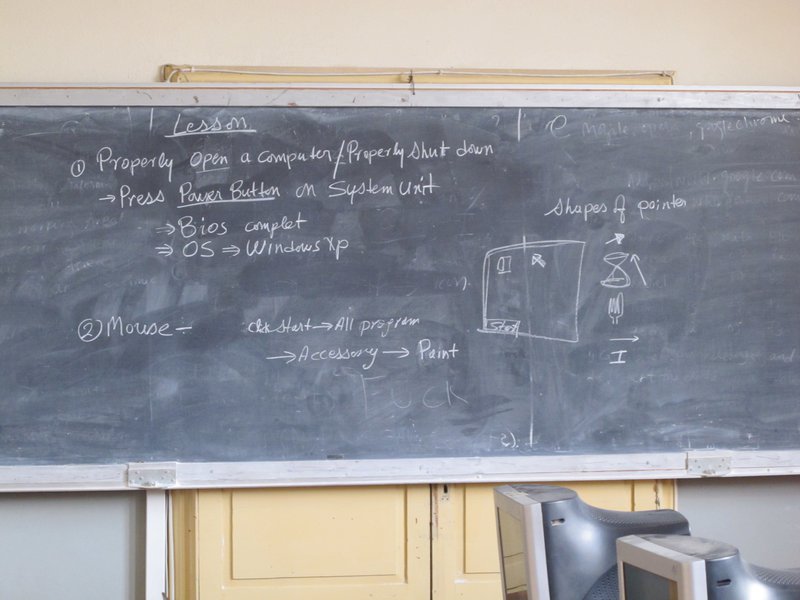 Lesson
① Properly Open a computer / Properly Shut down
→ Press Power Button on System Unit
⇒ Bios complet
⇒ OS ⇒ Windows Xp
② Mouse :-
Start → All program
→ Accessory → Paint
Fuck
Shapes of pointer
Start
I
google chrome
google.com